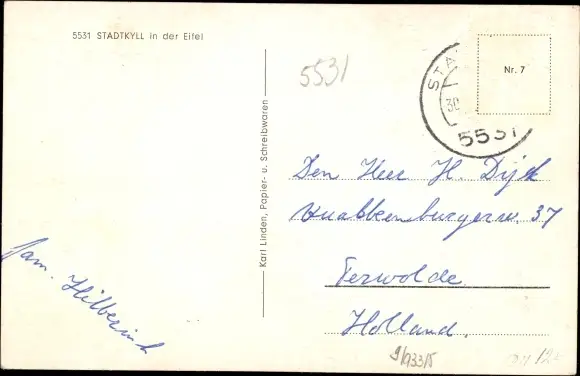 5531 STADTKYLL in der Eifel
Karl Linden, Papier- u. Schreibwaren
5531
STA
30
5531
Nr. 7
Den Heer H. Dijk
Knabbenburgerw. 37
Terwolde
Holland.
fam. Hilberink